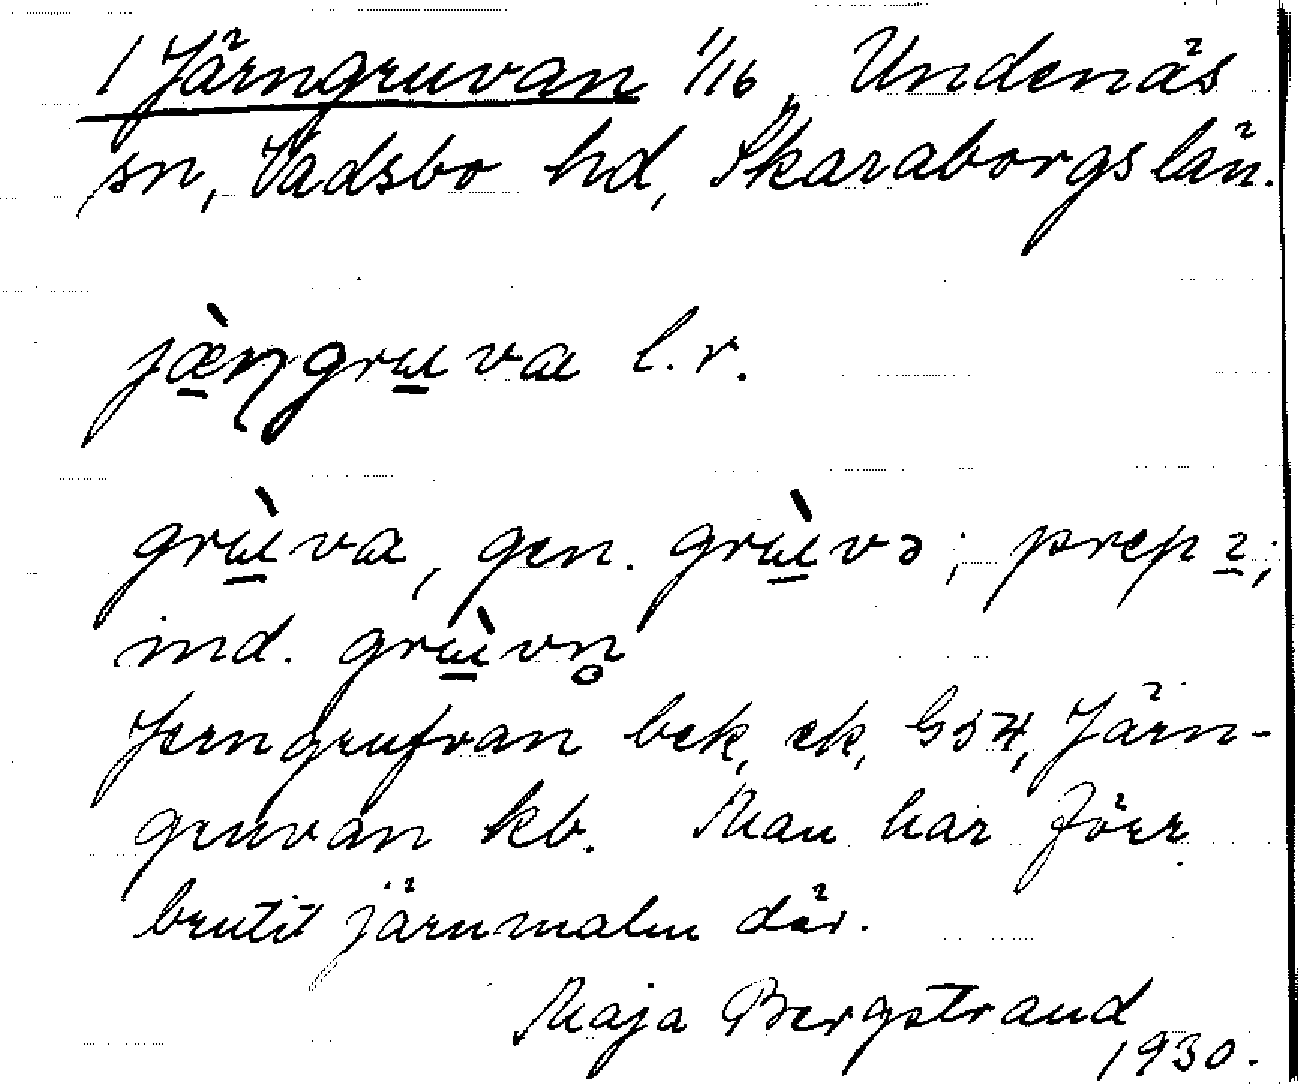 1 Järngruvan 1/16, Undenäs
sn, Vadsbo hd, Skaraborgs län.
jæ̀ŋgruva l.r.
grùva, gen. grùvə; prep i;
ind. grùvn̥
Jerngrufvan bek, ek, G54, Järn-
gruvan kb. Man har förr
brutit järnmalm där.
Maja Bergstrand
1930.